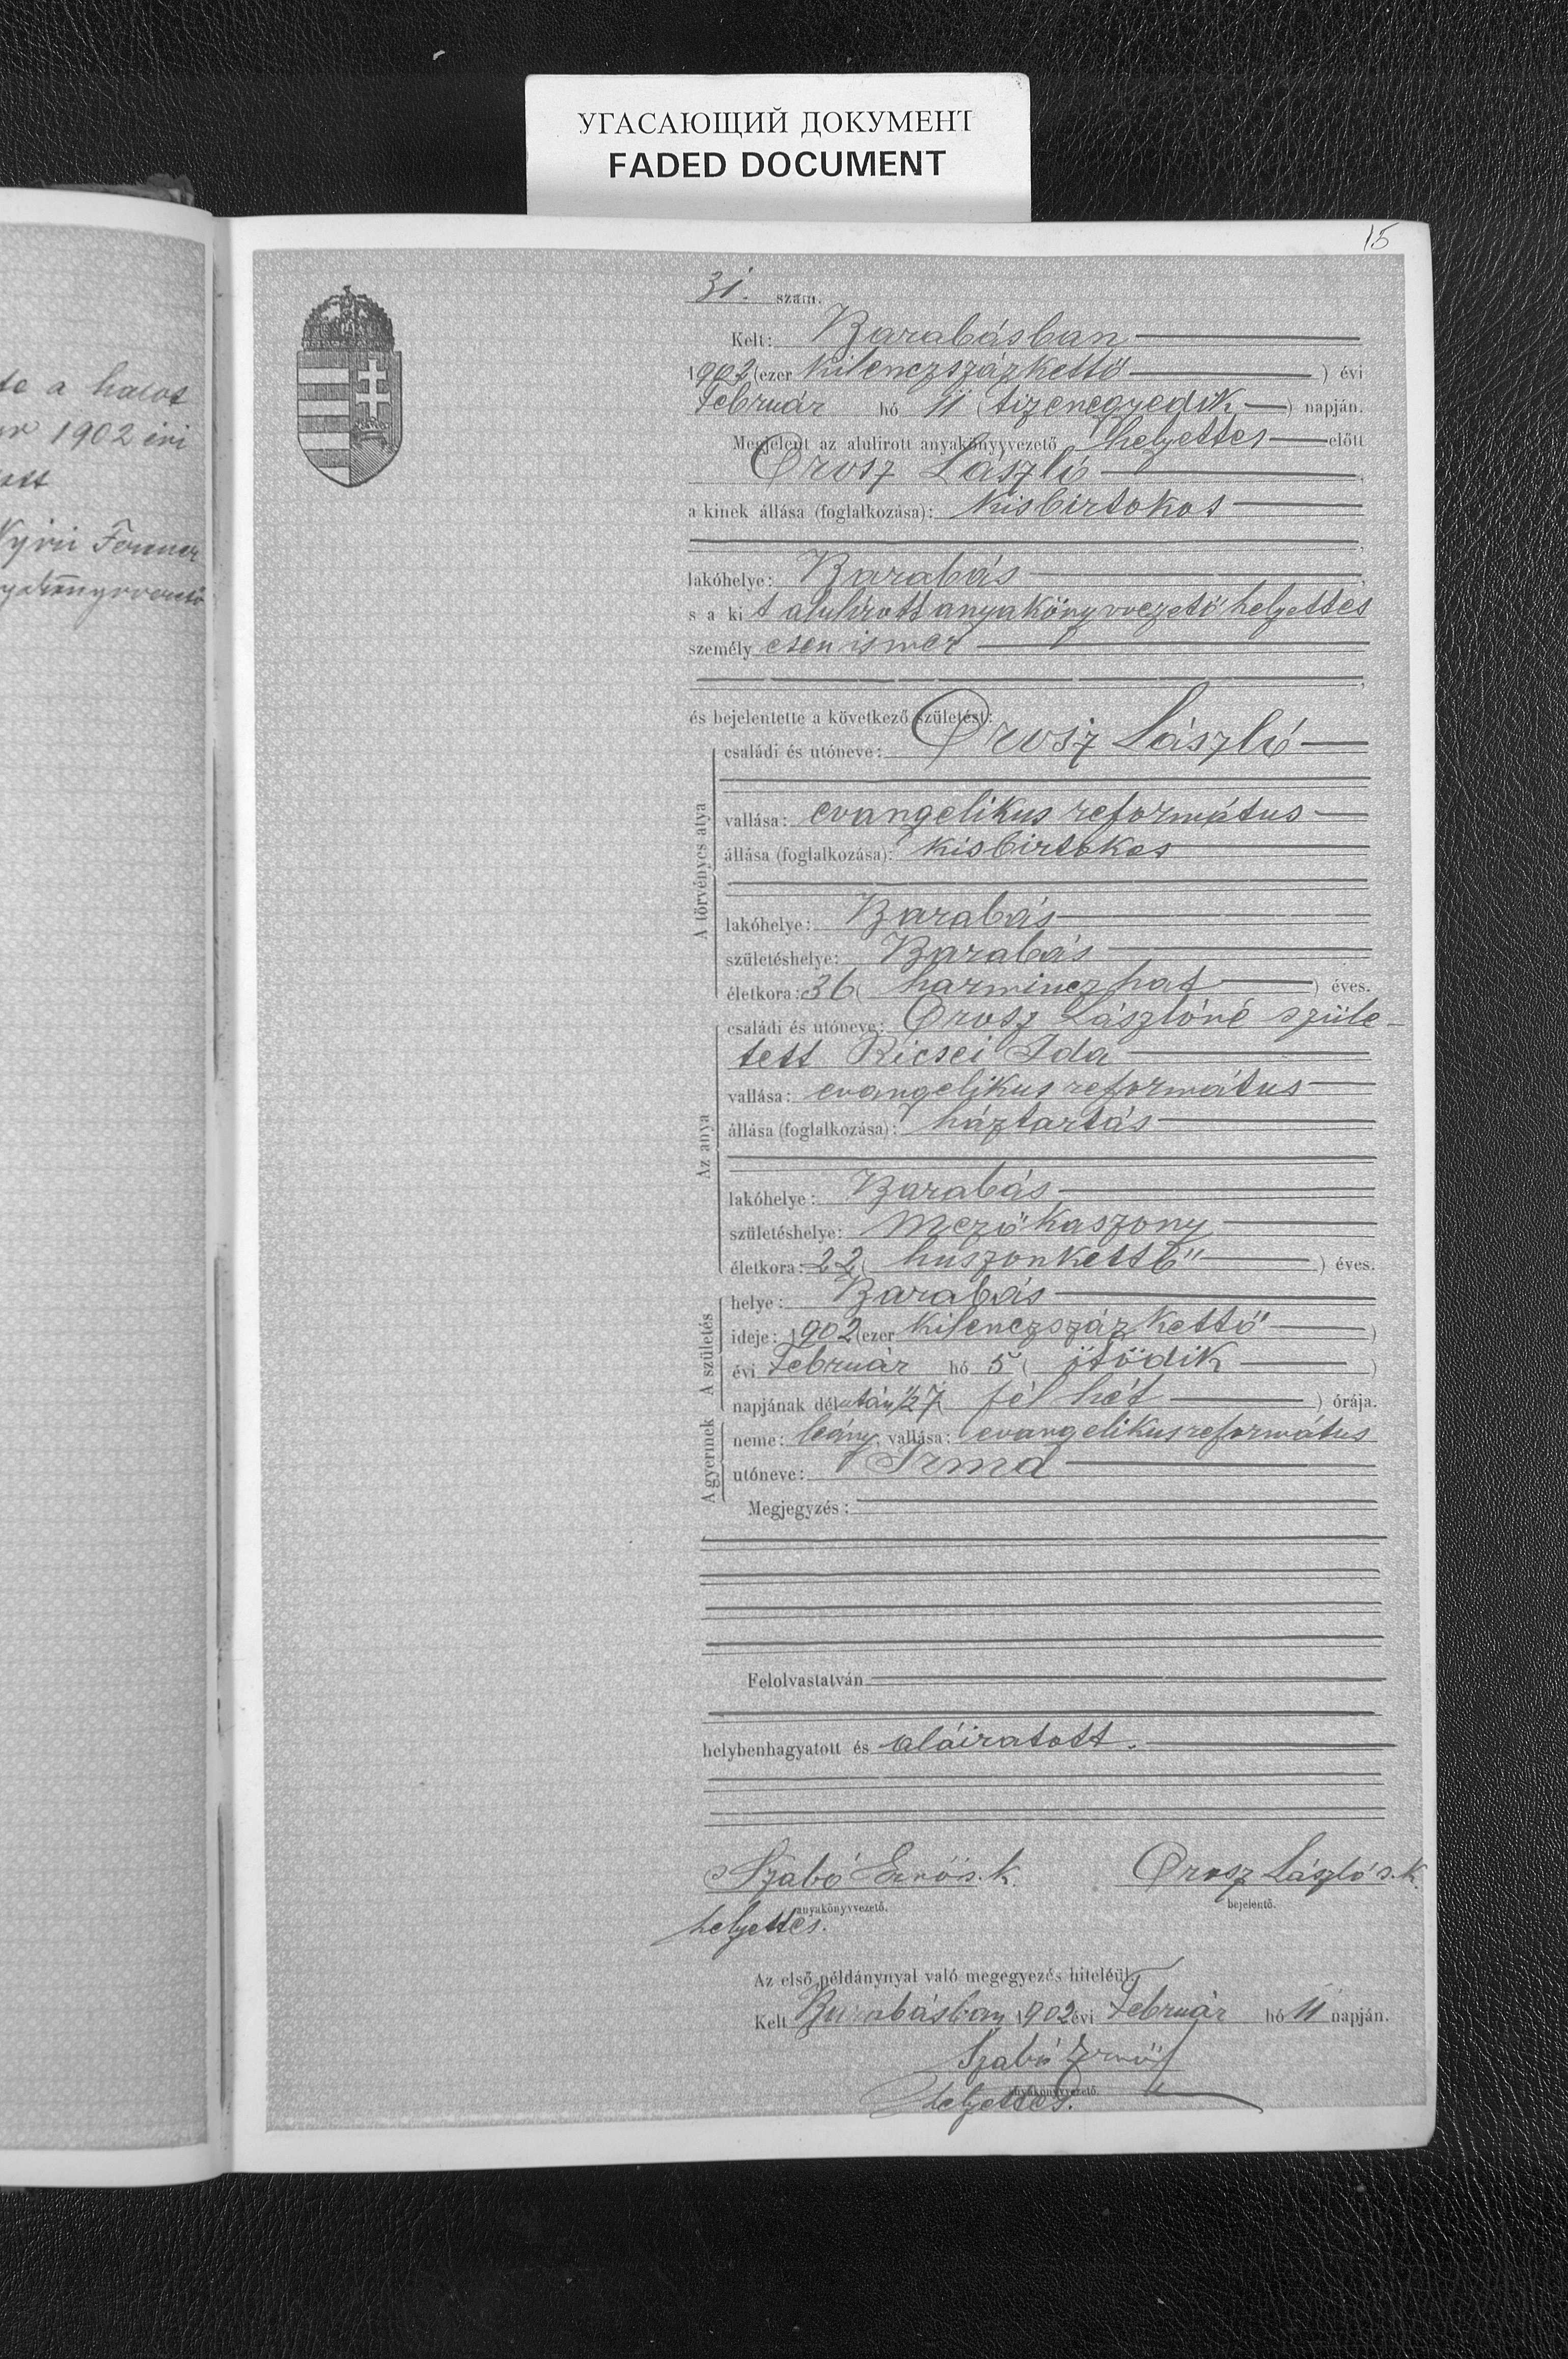 УГАСАЮЩИЙ ДОКУМЕНТ
FADED DOCUMENT
15
te a halot
1902 évi
Nyiri Ferencz
31. szám.
Kelt: Barabásban
1902 (ezer kilenczszázkettő ) évi
Február hó 11 (tizenegyedik ) napján.
Megjelent az alulirott anyakönyvvezető helyettes előtt
Orosz László ,
a kinek állása (foglalkozása): kisbirtokos
lakóhelye: Barabás ,
s a kit alulirott anyakönyvvezető helyettes
személyesen ismer
és bejelentette a következő születést:
A törvényes atya
családi és utóneve: Orosz László
vallása: evangelikus református
állása (foglalkozása): kisbirtokos
lakóhelye: Barabás
születéshelye: Barabás
életkora: 36 ( harminczhat ) éves.
Az anya
családi és utóneve: Orosz Lászlóné szüle-
tett Ricsei Ida
vallása: evangelikus református
állása (foglalkozása): háztartás
lakóhelye: Barabás
születéshelye: Mezőkaszony
életkora: 22 ( huszonkettő ) éves.
A születés
helye: Barabás
ideje: 1902 (ezer kilenczszázkettő )
évi Február hó 5 ( ötödik )
napjának délután ½7 ( fél hét ) órája.
A gyermek
neme: leány, vallása: evangelikus református
utóneve: Irma
Megjegyzés:
Felolvastatván
helybenhagyatott és aláiratott.
Szabó Ernő s. k. Orosz László s. k.
anyakönyvvezető. bejelentő.
helyettes.
Az első példánynyal való megegyezés hiteléül.
Kelt Barabásban 1902 évi Február hó 11 napján.
Szabó Ernő
anyakönyvvezető.
helyettes.